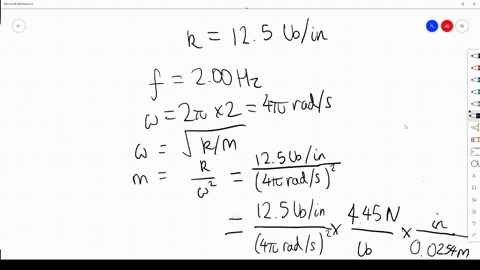 Microsoft Whiteboard
k = 12.5 lb/in
f = 2.00 Hz
ω = 2π × 2 = 4π rad/s
ω = √(k/m)
m = k/ω² = 12.5 lb/in / (4π rad/s)²
= 12.5 lb/in / (4π rad/s)² × 4.45 N / lb × in / 0.0254 m